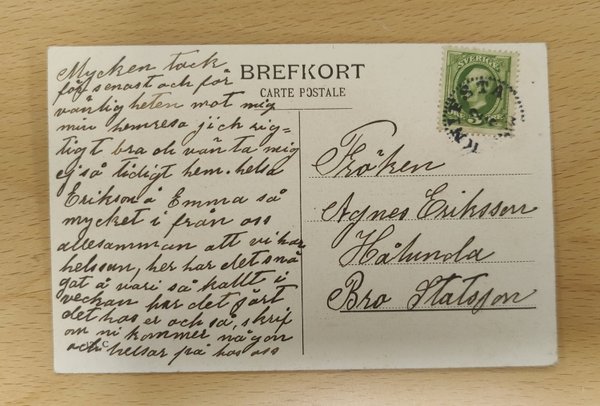 BREFKORT
CARTE POSTALE
SVERIGE
Mycken tack
för senast och för
vänlig heten mot mig
min hemresa jick rig=
tigt bra och
ej så tidigt hem. helsa
Erikson å Emma så
mycket i från oss
allesamman att vi har
helssan, her har det snö
gat å vari så kallt i
veckan har det
det hos er och så, skrif
om ni kommer någon
och helsar på hos oss
Fröken
Agnes Eriksson
Hålunda
Bro Statsson